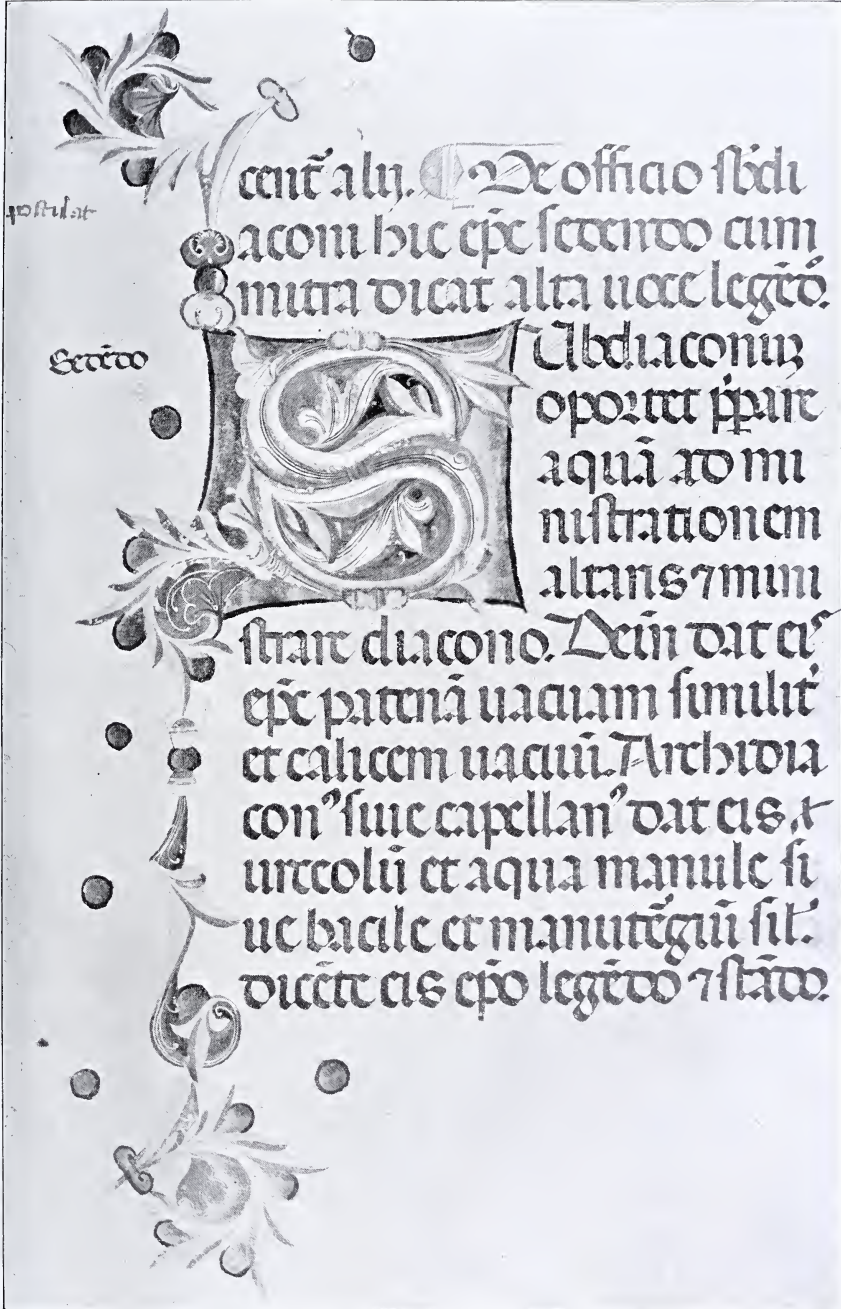 cent̄ alij. De officio sb̄di
postulat
aconi hic ep̄c sedendo cum
mitra dicat alta uoce legēdo.
Sedēdo
SUbdiaconuꝫ
oportet p̄parare
aquā ad mi
nistrationem
altaris ⁊ mini
strare diacono. Dein̄ dat eis
ep̄c patenā uacuam similit̄
et calicem uacuū. Archidia
conꝰ siue capellanꝰ dat eis
urceolū et aqua manule si
ue bacile et manutēgiū sil̄.
dicēte eis ep̄o legēdo ⁊ stādo.